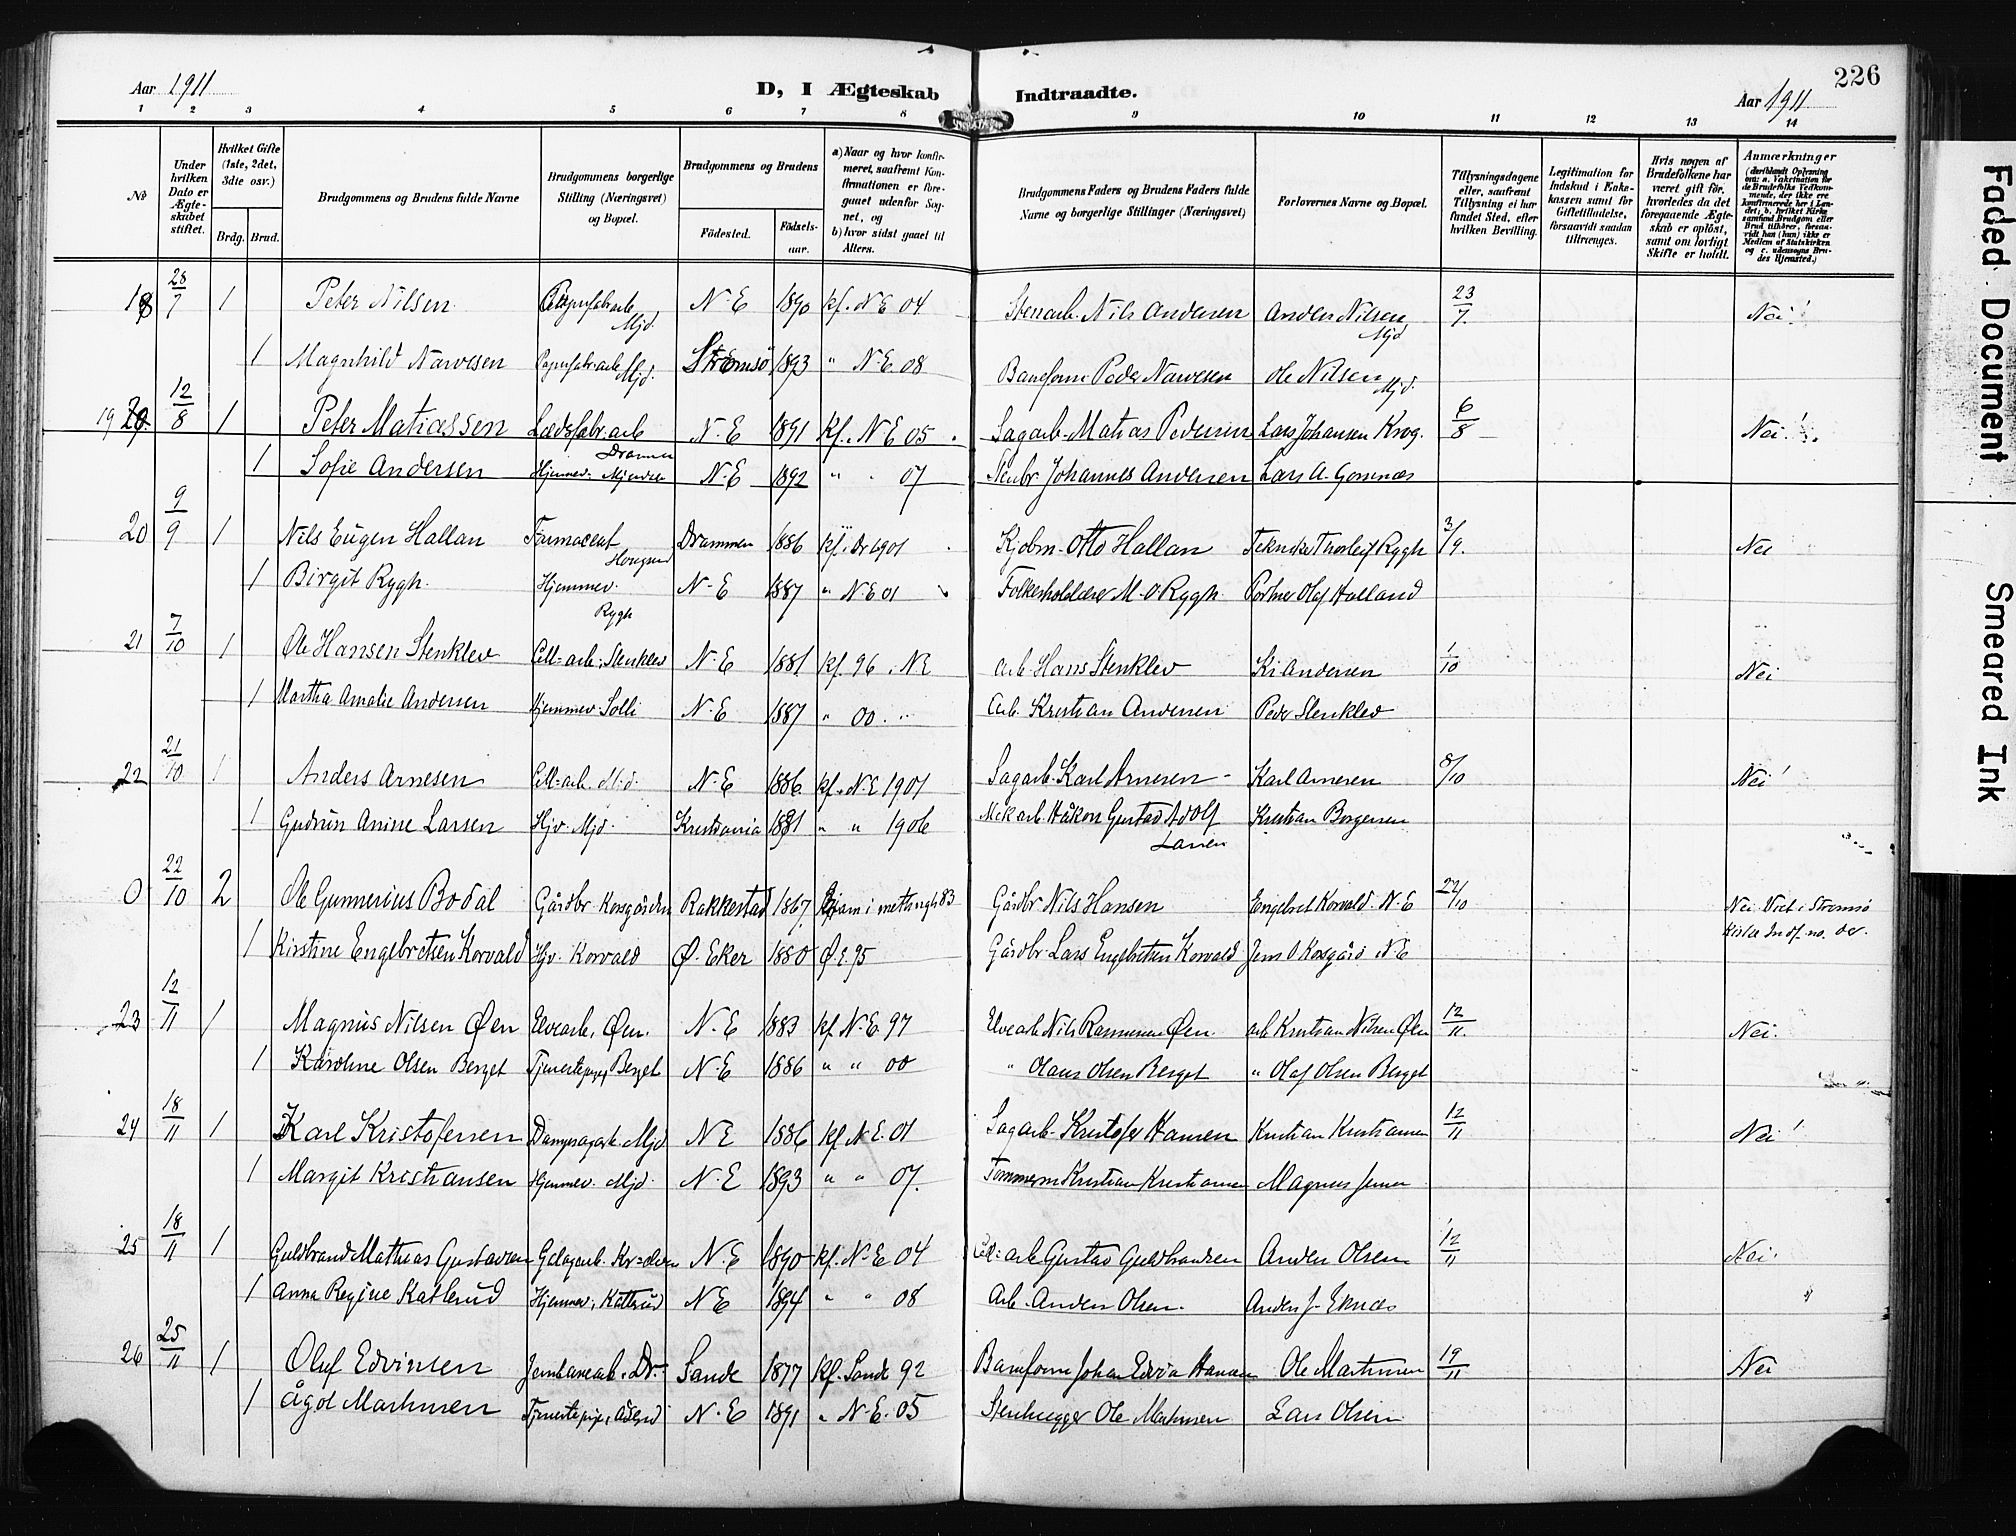 226
Aar 1911
D, I Ægteskab Indtraadte.
Aar 1911
1 2 3 4 5 6 7 8 9 10 11 12 13 14
№
Under hvilken Dato er Ægteskabet stiftet.
Hvilket Gifte (1ste, 2det, 3die osv.)
Brdg. Brud.
Brudgommens og Brudens fulde Navne
Brudgommens borgerlige Stilling (Næringsvei) og Bopæl.
Brudgommens og Brudens
Fødested.
Fødselsaar.
a) Naar og hvor konfirmeret, saafremt Konfirmationen er foregaaet udenfor Sognet, og
b) hvor sidst gaaet til Alters.
Brudgommens Faders og Brudens Faders fulde Navne og borgerlige Stillinger (Næringsvei)
Forlovernes Navne og Bopæl.
Tillysningsdagene eller, saafremt Tillysning ei har fundet Sted, efter hvilken Bevilling.
Legitimation for Indskud i Enkekassen samt for Giftetilladelse, forsaavidt saadan tiltrænges.
Hvis nogen af Brudefolkene har været gift før, hvorledes da det foregaaende Ægteskab er opløst, samt om lovligt Skifte er holdt.
Anmærkninger
(deriblandt Oplysning om: a. Vakcination for de Brudefolks Vedkommende, der ikke ere konfirmerede her i Landet; b. hvilket Kirkesamfund Brudgom eller Brud tilhører, forsaavidt han (hun) ikke er Medlem af Statskirken og c. udensogns Brudes Hjemsted.)
18 28/7 1 Peter Nilsen Papirfabrarb Mjd. N-E 1890 kf. N E 04 Stenarb. Nils Andersen Anders Nilsen Mjd 23/7. Nei!
1 Magnhild Narvesen Papirfabrarb Mjd. Strømsø 1893 " N-E 08 Baneform Peder Narvesen Ole Nilsen Mjd.
19 12/8 1 Peter Matiassen Lædfabr.arb Drammen N-E 1891 kf. N E 05 Sagarb. Matias Pedersen Lars Johansen Krog. 6/8 Nei!
1 Sofie Andersen Hjemmev. Mjøndalen N-E 1892 " 07 Johannes Andersen Lars A. Gomnæs
20 9/9 1 Nils Eugen Hallan Farmaceut Hougsund Drammen 1886 kf. i Dr 1901 Kjøbm. Otto Hallan Tekniker Thorleif Rygh 3/9. Nei
1 Birgit Rygh. Hjemmev. Rygh N-E 1887 " N.E 01 M. O. Rygh Portner Olaf Halland
21 7/10 1 Ole Hansen Stenklev Cell=arb. Stenklev N-E 1881 kf. 96. NE Arb. Hans Stenklev Kr Andersen 1/10 Nei
1 Martha Amalie Andersen Hjemmev. Solli N-E 1887 " 00. " Arb. Kristian Andersen Peder Stenklev
22 21/10 1 Anders Arnesen Cell=arb. Mjd. N-E 1886 kf. N.E 1901 Sagarb. Karl Arnesen Karl Arnesen 8/10 Nei!
1 Gudrun Anine Larsen Hjv. Mjd. Kristiania 1891 " " 1906 Mek arb. Håkon Gustav Adolf Larsen Kristian Borgersen
0 22/10 2 Ole Gunnerius Bodal Gårdbr Korsgården Rakkestad 1867 Gårdbr Nils Hansen Engebret Korvald N-E 22/10 Nei. Viet i Strømsø
1 Kirstine Engebretsen Korvald Hjv. Korvald Ø. Eker 1880 Ø. E. 95 Gårdbr Lars Engebretsen Korvald Jens O Korsgård N-E
23 12/11 1 Magnus Nilsen Øen Elvearb. Øen. N-E 1883 kf. N-E. 97 Elvearb Nils Rasmussen Øen. arb Kristian Nilsen Øen 12/11. Nei.
1 Karoline Olsen Berget Tjenestepige, Berget N-E 1886 " " 00 " Olaus Olsen Berget " Olaf Olsen Berget
24 18/11 1 Karl Kristofersen Dampsagarb. Mjd N E 1886 kf. N.E. 01 Sagarb. Kristofer Hansen Kristian Kristiansen 12/11 Nei!
1 Margit Kristiansen Hjemmev. Mjd. N-E 1893 " " 07. Tømmerm Kristian Kristiansen Magnus Jensen
25 18/11 1 Guldbrand Mathias Gustavsen N.E 1890 kf. N-E 04 Cell=arb Gustav Guldbrandsen Anders Olsen 12/11 Nei.
1 Anna Regine Katterud Hjemmev, Katterud N E 1894 " " 08 Arb. Anders Olsen. Anders J. Eknæs "
26 25/11 1 Oluf Edvinsen Jernbanearb. Dr. Sande 1877 kf. Sande 92 Baneform Johan Edvin Hansen Ole Martinsen 19/11 Nei
1 Ågot Martinsen Tjenestepige, N-E 1891 " N-E. 05 Stenhugger Ole Martinsen Lars Olsen
Faded Document
Smeared Ink